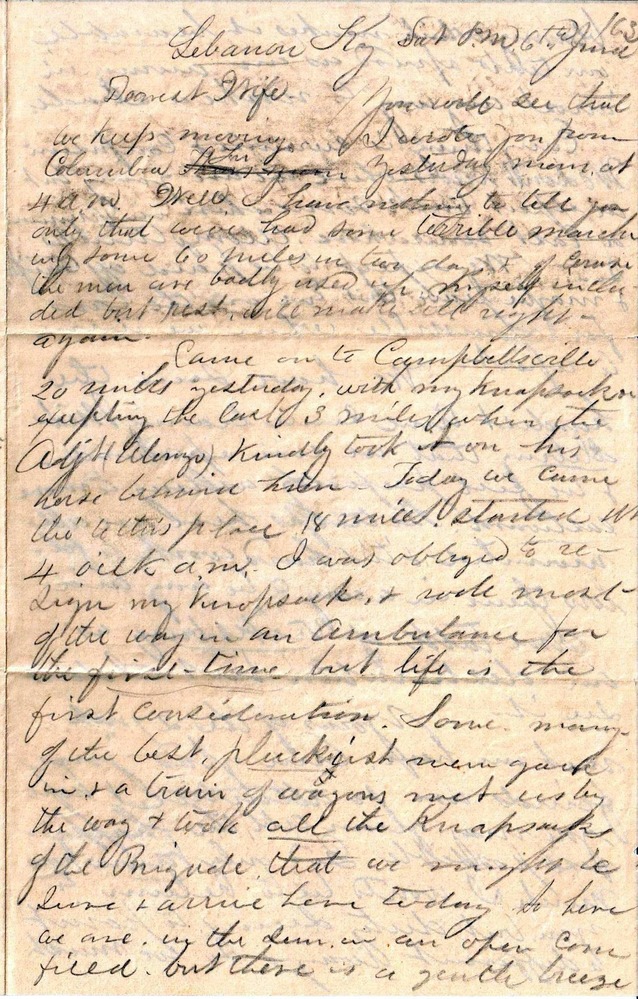 163
Lebanon Ky Sat P.M. 6th June
Dearest Wife You will see that
we keep moving I wrote you from
Columbia yesterday morn. at
4 a.m. Well I have nothing to tell you
only that we've had some terrible march
ing some 60 miles in two days, & of course
the men are badly used up, myself inclu
ded but rest, will make all right
again.
Came on to Campbellsville
20 miles yesterday, with my Knapsack on
excepting the last 3 miles when the
Adjt (Alonzo) Kindly took it on his
horse behind him Today we came
to this place 18 miles. started at
4 oclk a.m. I was obliged to re-
sign my Knapsack, & rode most
of the way in an Ambulance for
the first time but life is the
first consideration. Some many
of the best, pluckiest men gave
in. & a train of wagons met us by
the way & took all the Knapsacks
of the Brigade, that we might be
sure & arrive here today So here
we are. in the sun. in an open corn
field. but there is a gentle breeze